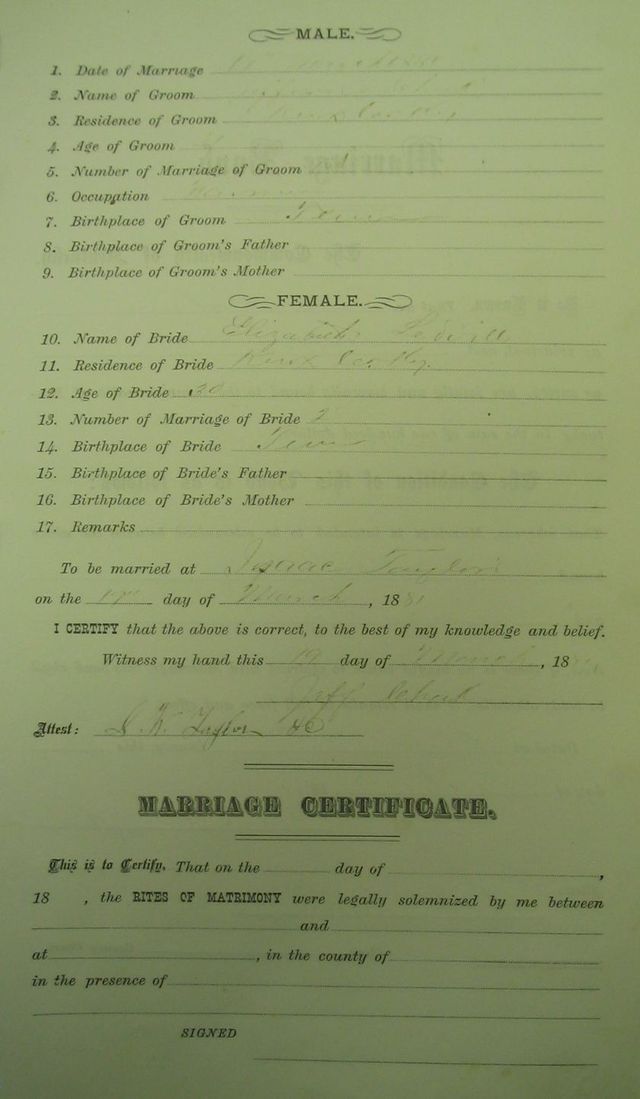 MALE.
1. Date of Marriage
2. Name of Groom
3. Residence of Groom
4. Age of Groom
5. Number of Marriage of Groom 1
6. Occupation
7. Birthplace of Groom Tenn
8. Birthplace of Groom's Father
9. Birthplace of Groom's Mother
FEMALE.
10. Name of Bride Elizabeth
11. Residence of Bride Knox Co. Ky.
12. Age of Bride 30
13. Number of Marriage of Bride 2
14. Birthplace of Bride Tenn
15. Birthplace of Bride's Father
16. Birthplace of Bride's Mother
17. Remarks
To be married at Isaac Taylors
on the day of March, 188
I CERTIFY that the above is correct, to the best of my knowledge and belief.
Witness my hand this 19 day of March, 188
Jeff
Attest: Taylor
MARRIAGE CERTIFICATE.
This is to Certify, That on the day of ,
18 , the RITES OF MATRIMONY were legally solemnized by me between
and
at , in the county of
in the presence of
SIGNED